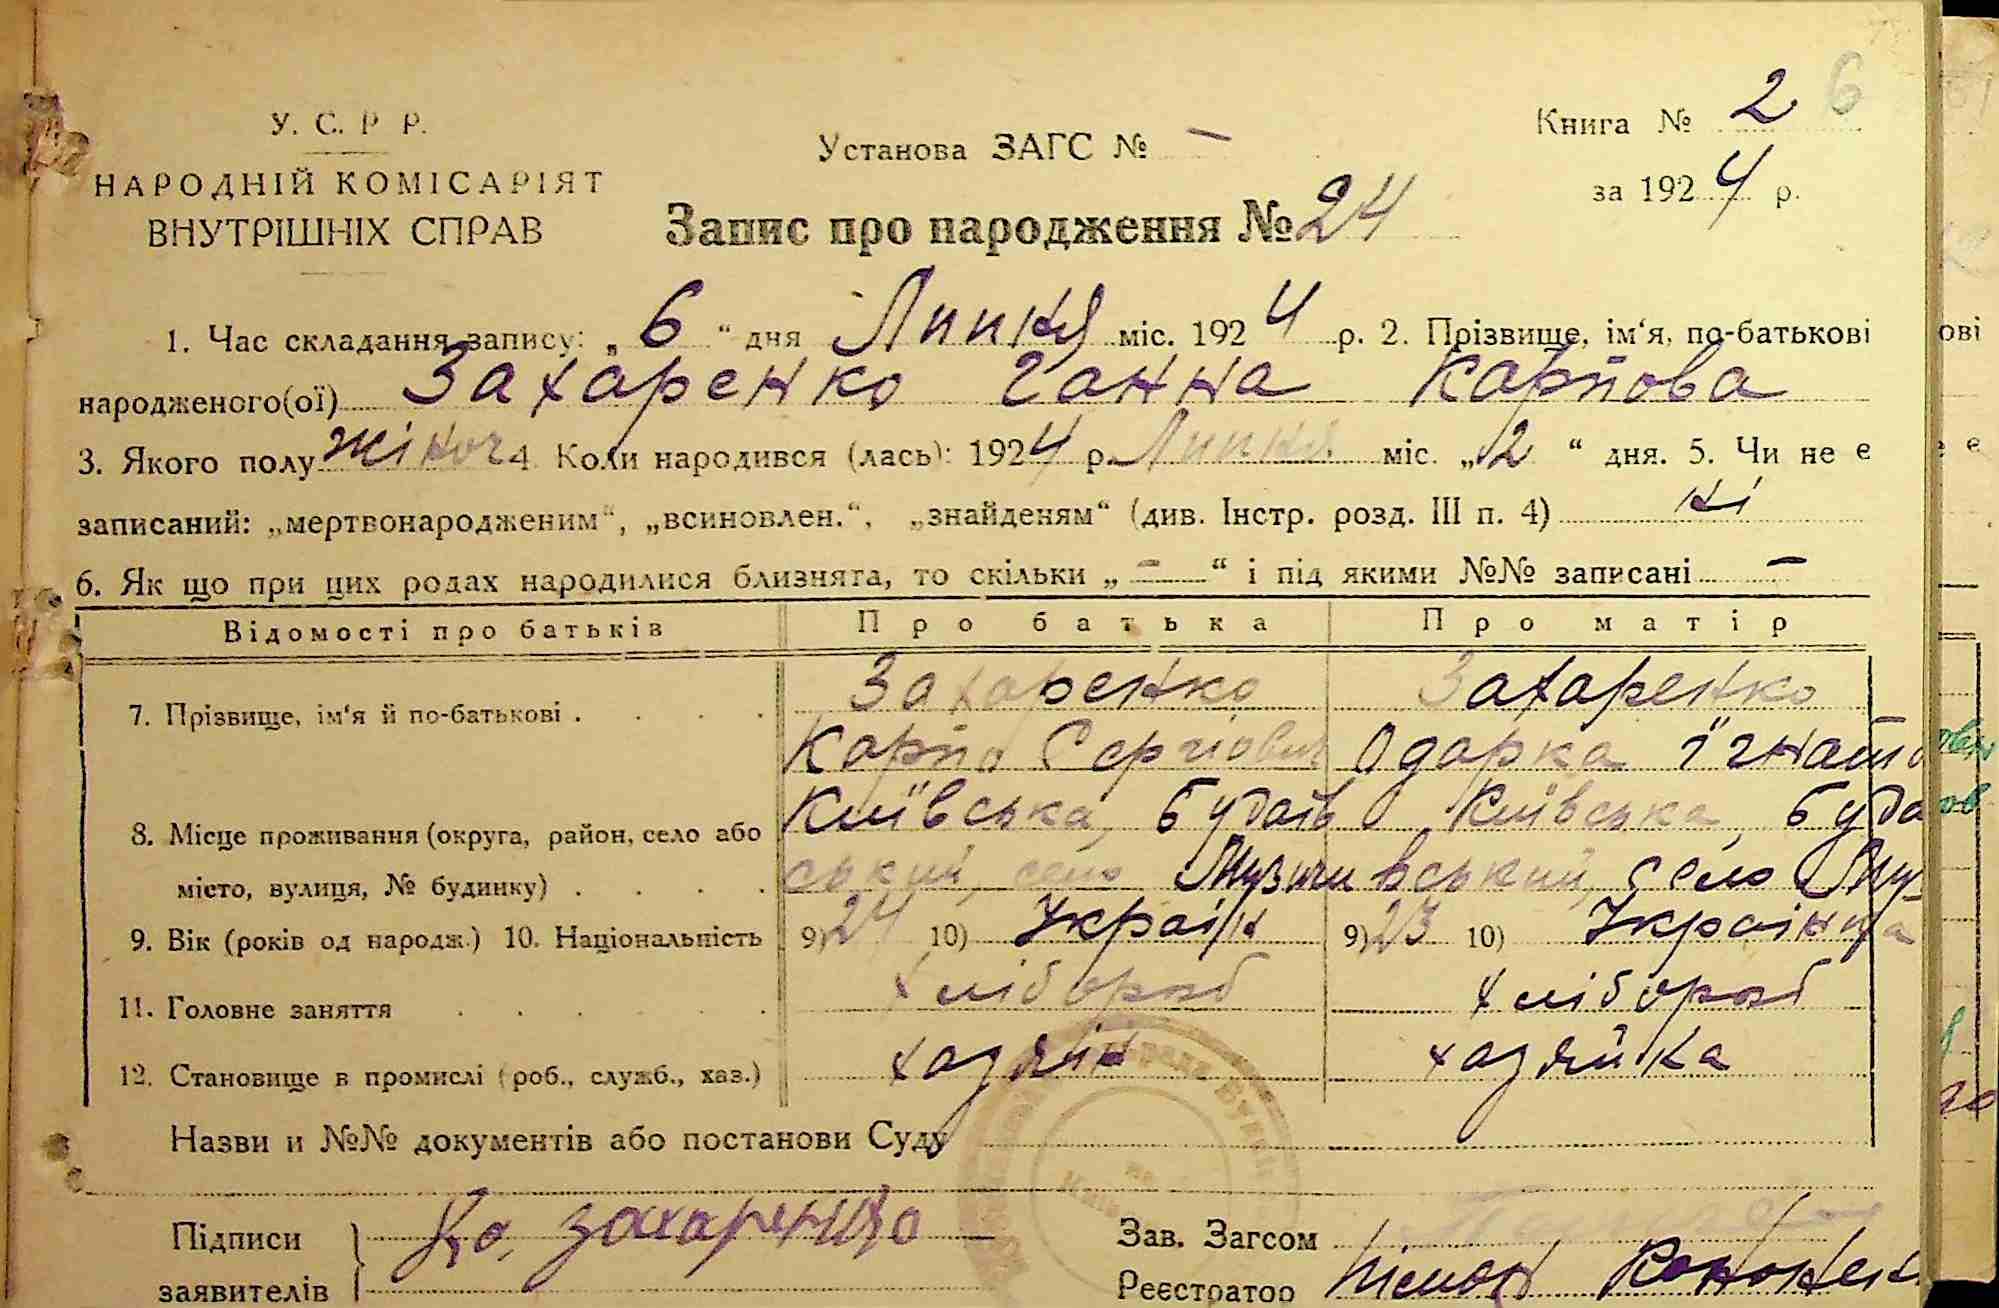 У. С. Р Р.
НАРОДНІЙ КОМІСАРІЯТ
ВНУТРІШНІХ СПРАВ
Установа ЗАГС № —
Книга № 2 6
за 1924 р.
Запис про народження № 24
1. Час складання запису: „6“ дня Липня міс. 1924 р. 2. Прізвище, ім‘я, по-батькові
народженого(ої) Захаренко Ганна Карпова
3. Якого полу жіноч 4. Коли народився (лась): 1924 р. Липня міс. „2“ дня. 5. Чи не є
записаний: „мертвонародженим“, „всиновлен.“, „знайденям“ (див. Інстр. розд. III п. 4) ні
6. Як що при цих родах народилися близнята, то скільки „—“ і під якими №№ записані —
Відомості про батьків Про батька Про матір
7. Прізвище, ім‘я й по-батькові . . . . Захаренко Захаренко
Карпо Сергіович Одарка Ігнато
Київська, Будаїв Київська, Буда
8. Місце проживання (округа, район, село або
ський, село Музичи вський, село Му-
місто, вулиця, № будинку) . . . .
9. Вік (років од народж.) 10. Національність 9) 24 10) Україн 9) 23 10) Українка
11. Головне заняття . . . . . . хлібороб хлібороб
12. Становище в промислі (роб., служб., хаз.) хазяїн хазяйка
Назви и №№ документів або постанови Суду
Підписи
заявителів
Захаренко
Зав. Загсом
Реєстратор Кононен